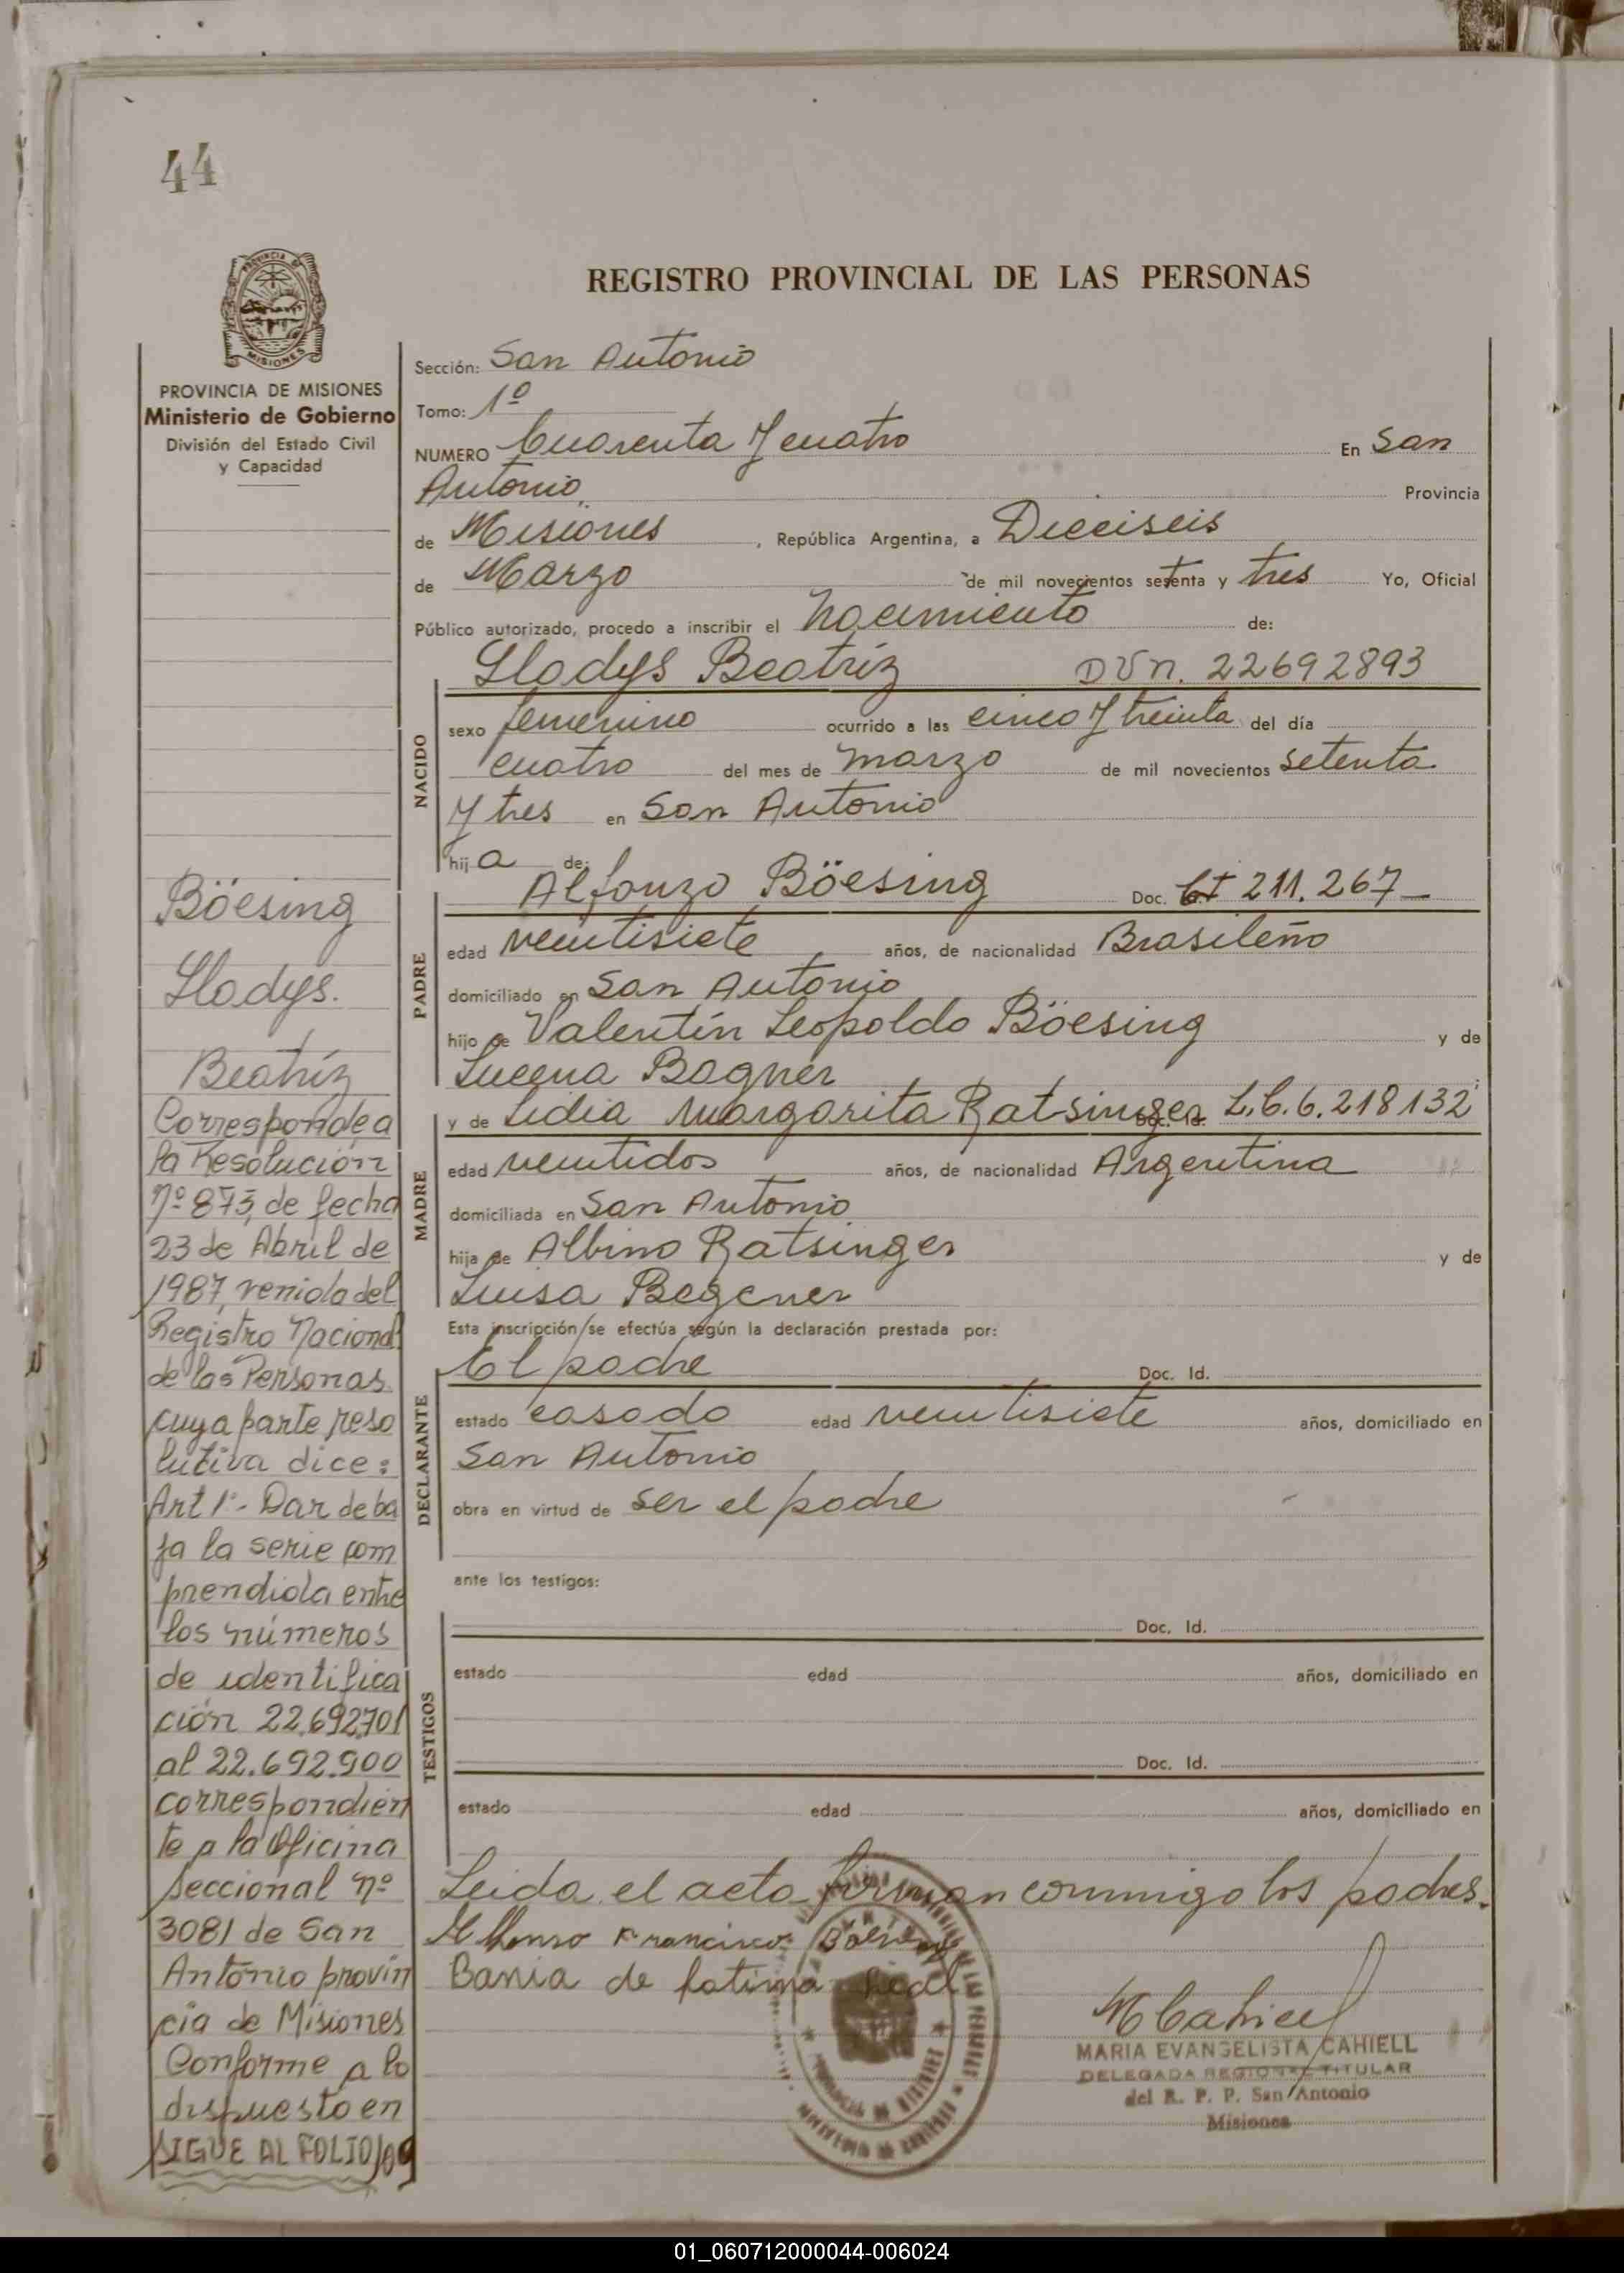 44
REGISTRO PROVINCIAL DE LAS PERSONAS
PROVINCIA DE MISIONES
Ministerio de Gobierno
División del Estado Civil
y Capacidad
Sección: San Antonio
Tomo: 1º
NUMERO Cuarenta y cuatro En San
Antonio Provincia
de Misiones, República Argentina, a Dieciseis
de Marzo de mil novecientos setenta y tres Yo, Oficial
Público autorizado, procedo a inscribir el Nacimiento de:
Gladys Beatríz DUn. 22692893
NACIDO
sexo femenino ocurrido a las cinco y treinta del día
cuatro del mes de marzo de mil novecientos setenta
y tres en San Antonio
hija de:
Alfonzo Böesing Doc. CI 211.267
PADRE
edad veintisiete años, de nacionalidad Brasileño
domiciliado en San Antonio
hijo de Valentín Leopoldo Böesing y de
Lucena Bagner
y de Lidia Margarita Ratsinger Doc. Id. L.C. 6.218132
MADRE
edad veintidos años, de nacionalidad Argentina
domiciliada en San Antonio
hija de Albino Ratsinger y de
Luisa Begener
Esta inscripción se efectúa según la declaración prestada por:
El padre Doc. Id.
DECLARANTE
estado casado edad veintisiete años, domiciliado en
San Antonio
obra en virtud de ser el padre
ante los testigos:
Doc. Id.
TESTIGOS
estado edad años, domiciliado en
Doc. Id.
estado edad años, domiciliado en
Leida el acta firman conmigo los padres.
Alfonso Francisco Böesing
Bania de fatima
MCahiell
MARIA EVANGELISTA CAHIELL
DELEGADA REGIONAL TITULAR
del R. P. P. San Antonio
Misiones
Böesing
Gladys.
Beatríz
Corresponde a
la Resolución
Nº 873, de fecha
23 de Abril de
1987, venida del
Registro Nacional
de las Personas
cuya parte reso
lutiva dice:
Art 1º- Dar de ba
ja la serie com
prendida entre
los números
de identifica
ción 22.692.701
al 22.692.900
correspondien
te a la Oficina
Seccional nº
3081 de San
Antonio provin
cia de Misiones
Conforme a lo
dispuesto en
SIGUE AL FOLIO 109
01_060712000044-006024